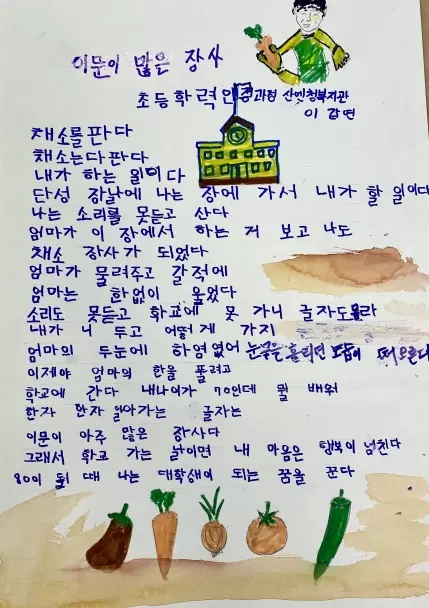 이문이 많은 장사
초등학력인정과정 산엔청복지관
이 갑연
채소를 판다
채소는 다 판다
내가 하는 일이다
단성 장날에 나는 장에 가서 내가 할 일이다
나는 소리를 못듣고 산다
엄마가 이 장에서 하는 거 보고 나도
채소 장사가 되었다
엄마가 물려주고 갈적에
엄마는 한없이 울었다
소리도 못듣고 학교에 못 가니 글자도몰라
내가 니 두고 어떻게 가지
엄마의 두눈에 하염없어 눈물을 흘리던 모습이 떠오른다
이제야 엄마의 한을 풀려고
학교에 간다 내나이가 70인데 뭘 배워
한자 한자 알아가는 글자는
이문이 아주 많은 장사다
그래서 학교 가는 날이면 내 마음은 행복이 넘친다
80이 될 때 나는 대학생이 되는 꿈을 꾼다